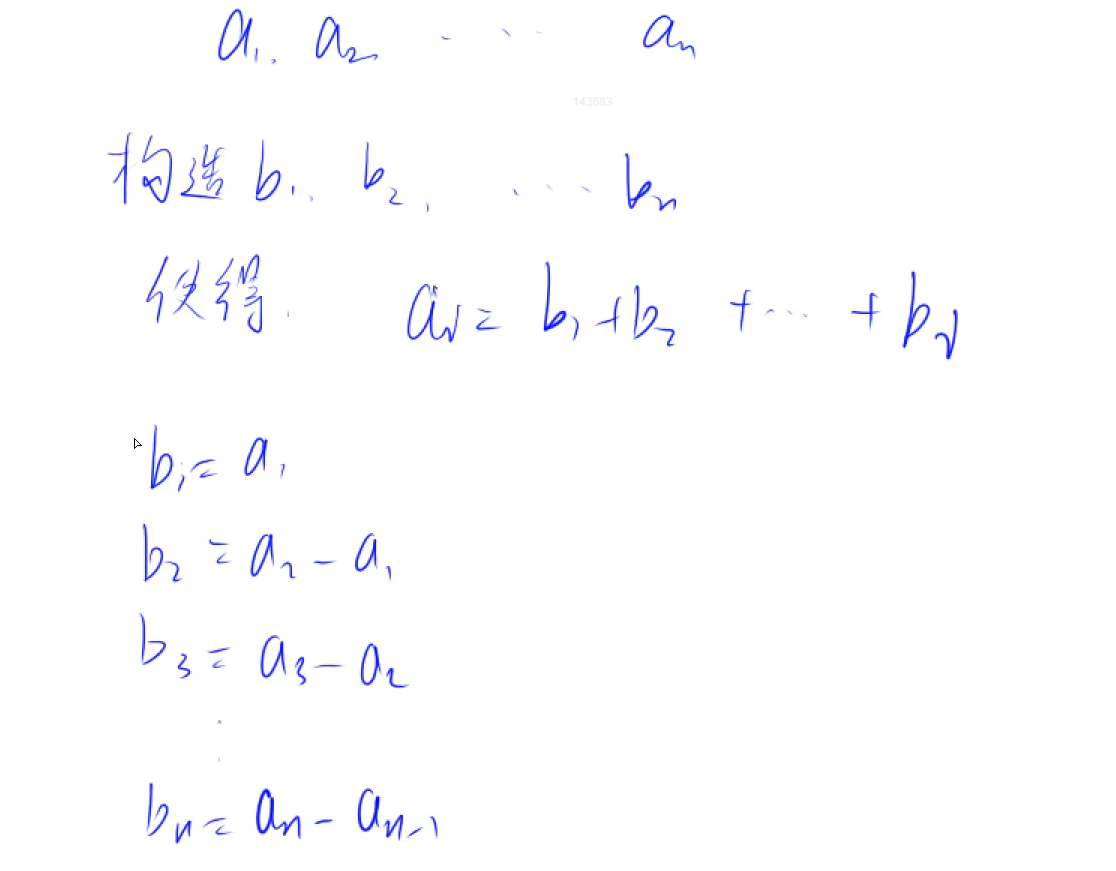 a₁, a₂ ····· aₙ
143683
构造 b₁, b₂, ····· bₙ
使得. aᵢ = b₁ + b₂ + ··· + bᵢ
b₁ = a₁
b₂ = a₂ - a₁
b₃ = a₃ - a₂
⋮
bₙ = aₙ - aₙ₋₁